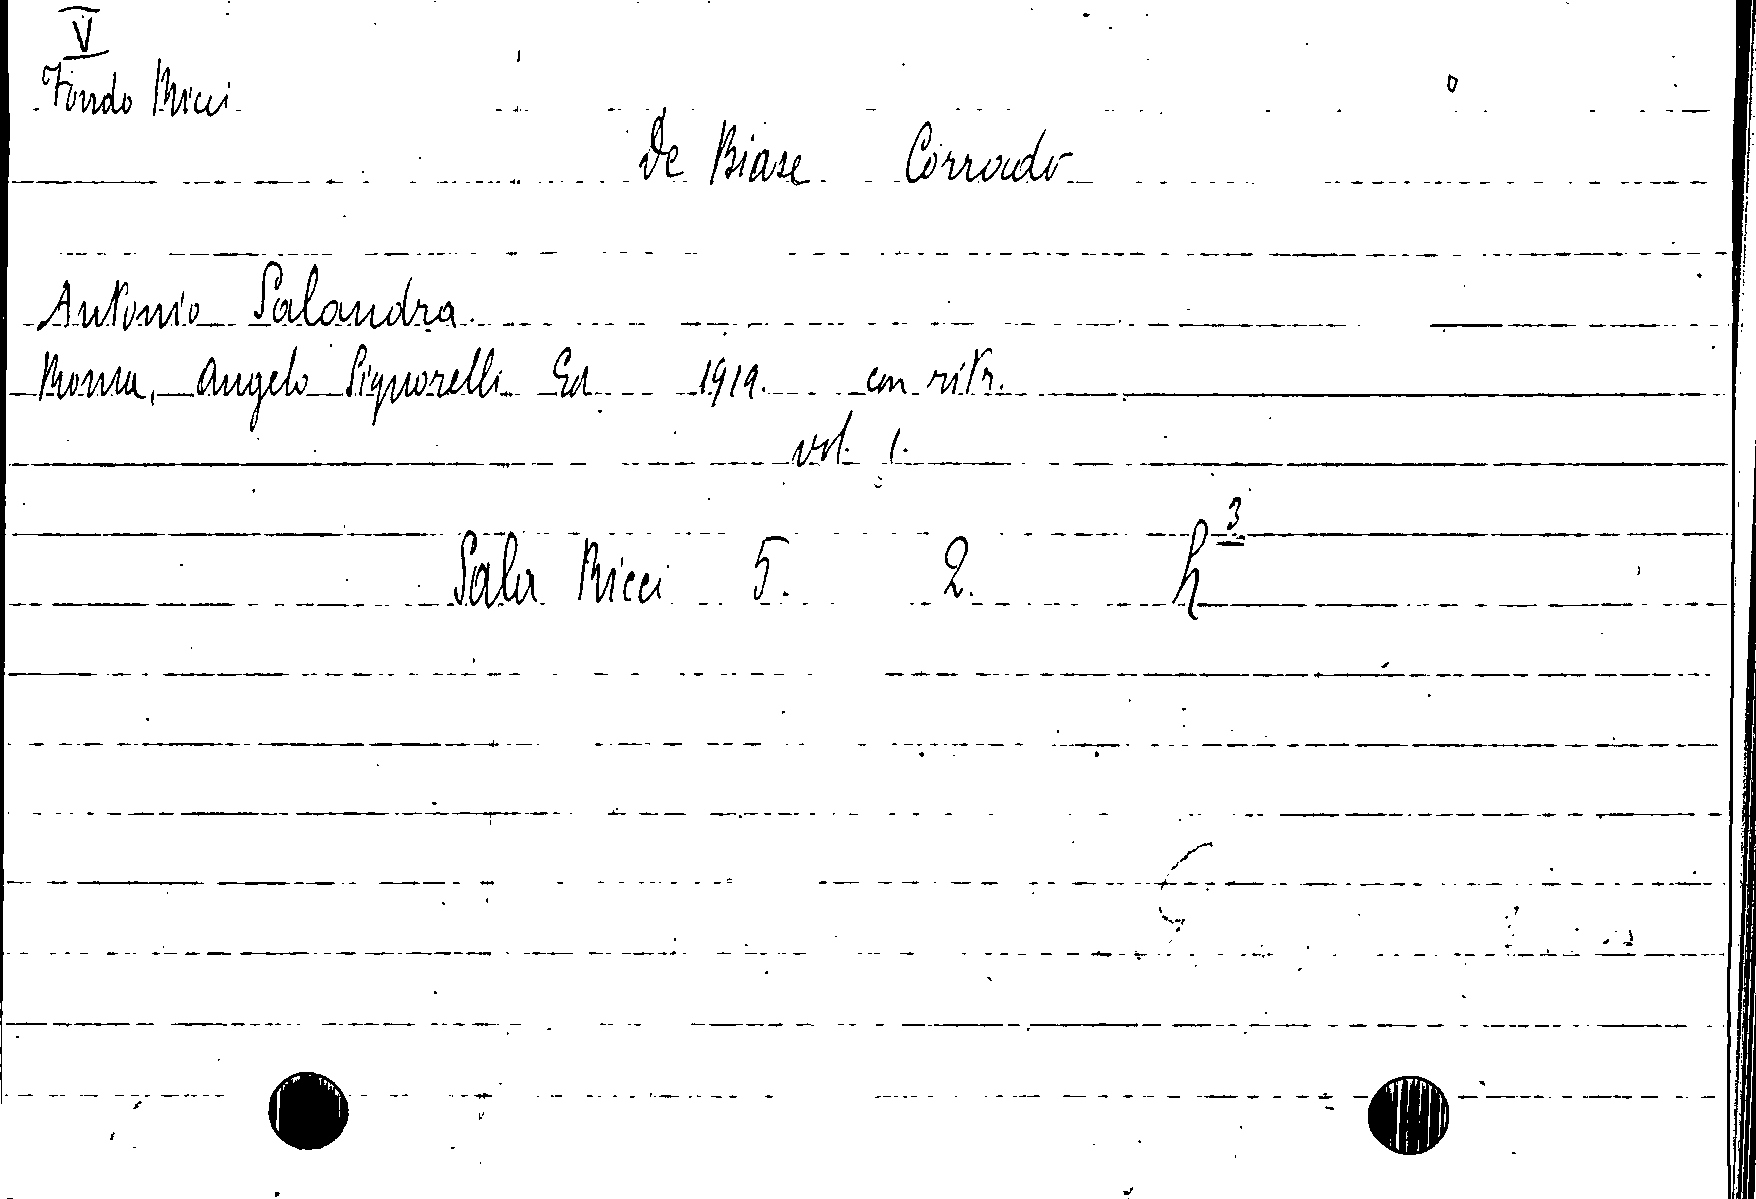 V
Fondo Ricci
De Biase Corrado
Antonio Salandra.
Roma, Angelo Signorelli Ed 1919. con ritr.
vol. 1.
Sala Ricci 5. 2. h3